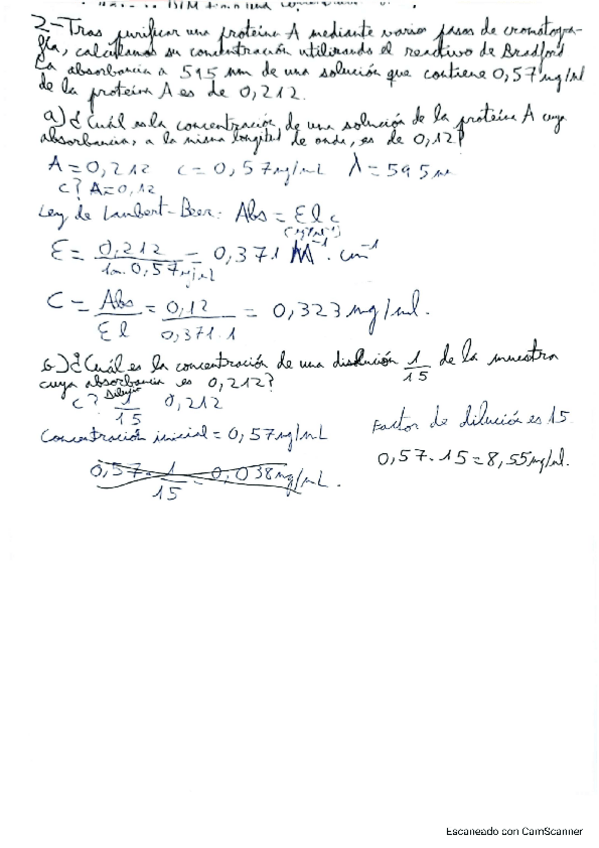 2-Tras purificar una proteína A mediante varios pasos de cromatogra-
fía, calculamos su concentración utilizando el reactivo de Bradford
La absorbancia a 595 nm de una solución que contiene 0,57 mg/ml
de la proteína A es de 0,212.
a) ¿Cuál es la concentración de una solución de la proteína A cuya
absorbancia, a la misma longitud de onda, es de 0,12?
A = 0,212 c = 0,57 mg/mL λ = 595 nm
c? A = 0,12
Ley de Lambert-Beer: Abs = E l c
(mg/ml⁻¹)
E = 0,212 / 1cm. 0,57 mg/mL = 0,371 M⁻¹ · cm⁻¹
C = Abs / E l = 0,12 / 0,371·1 = 0,323 mg/ml.
b) ¿Cuál es la concentración de una disolución 1/15 de la muestra
cuya absorbancia es 0,212?
c? 1/15 0,212
Concentración inicial = 0,57 mg/mL
Factor de dilución es 15
0,57 · 15 = 8,55 mg/ml.
0,57 · 1 / 15 = 0,038 mg/mL.
Escaneado con CamScanner